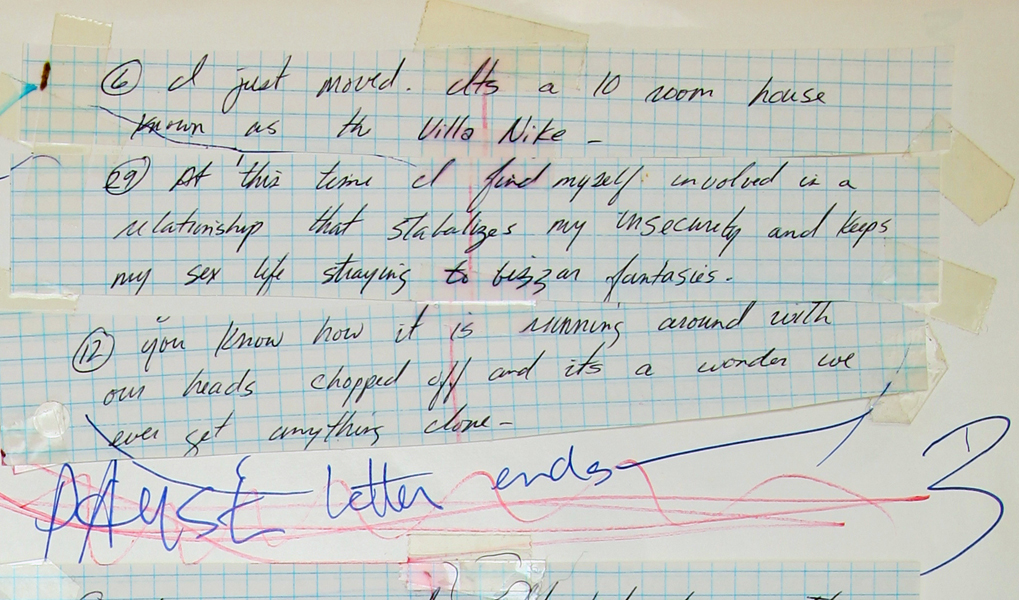 ⑥ I just moved. Its a 10 room house
known as th Villa Nike -
㉙ At this time I find myself involved in a
relationship that stabalizes my insecurity and keeps
my sex life straying to bizzar fantasies.
⑫ you know how it is running around with
our heads chopped off and its a wonder we
ever get anything done -
PAUSE letter ends 3